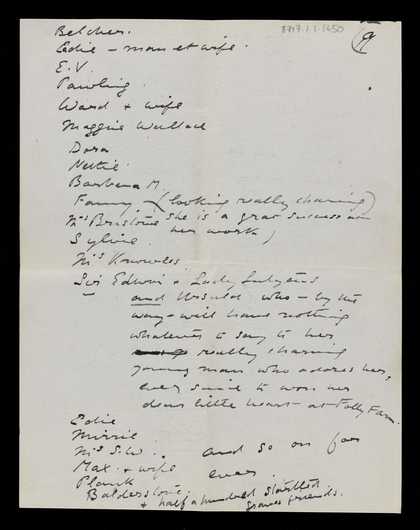 Belcher.
Edie – man et wife.
E.V.
Pawling.
Ward + wife
Maggie Wallace
Dora
Nettie
Barbara M.
Fanny – (looking really charming)
Mrs Bristowe she is a great success in
her work)
Sylvie.
Mrs Knowles.
Sir Edwin + Lady Lutyens
and Ursula who – by the
way – will have nothing
whatever to say to her
really charming
young man who adores her,
ever since he won her
dear little heart – at Folly Farm.
Edie
Mirrie
Mrs S.W. and so on for
Max. + wife ever.
Plank
Balderstone.
+ half a hundred startled
graves friends.
8717.1.1.1650
9